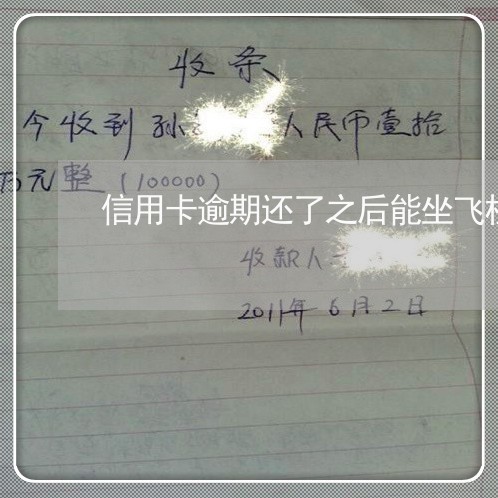 收条
今收到孙 人民币壹拾
万元整（100000）
信用卡逾期还了之后能坐飞机
收款人
2011年6月2日